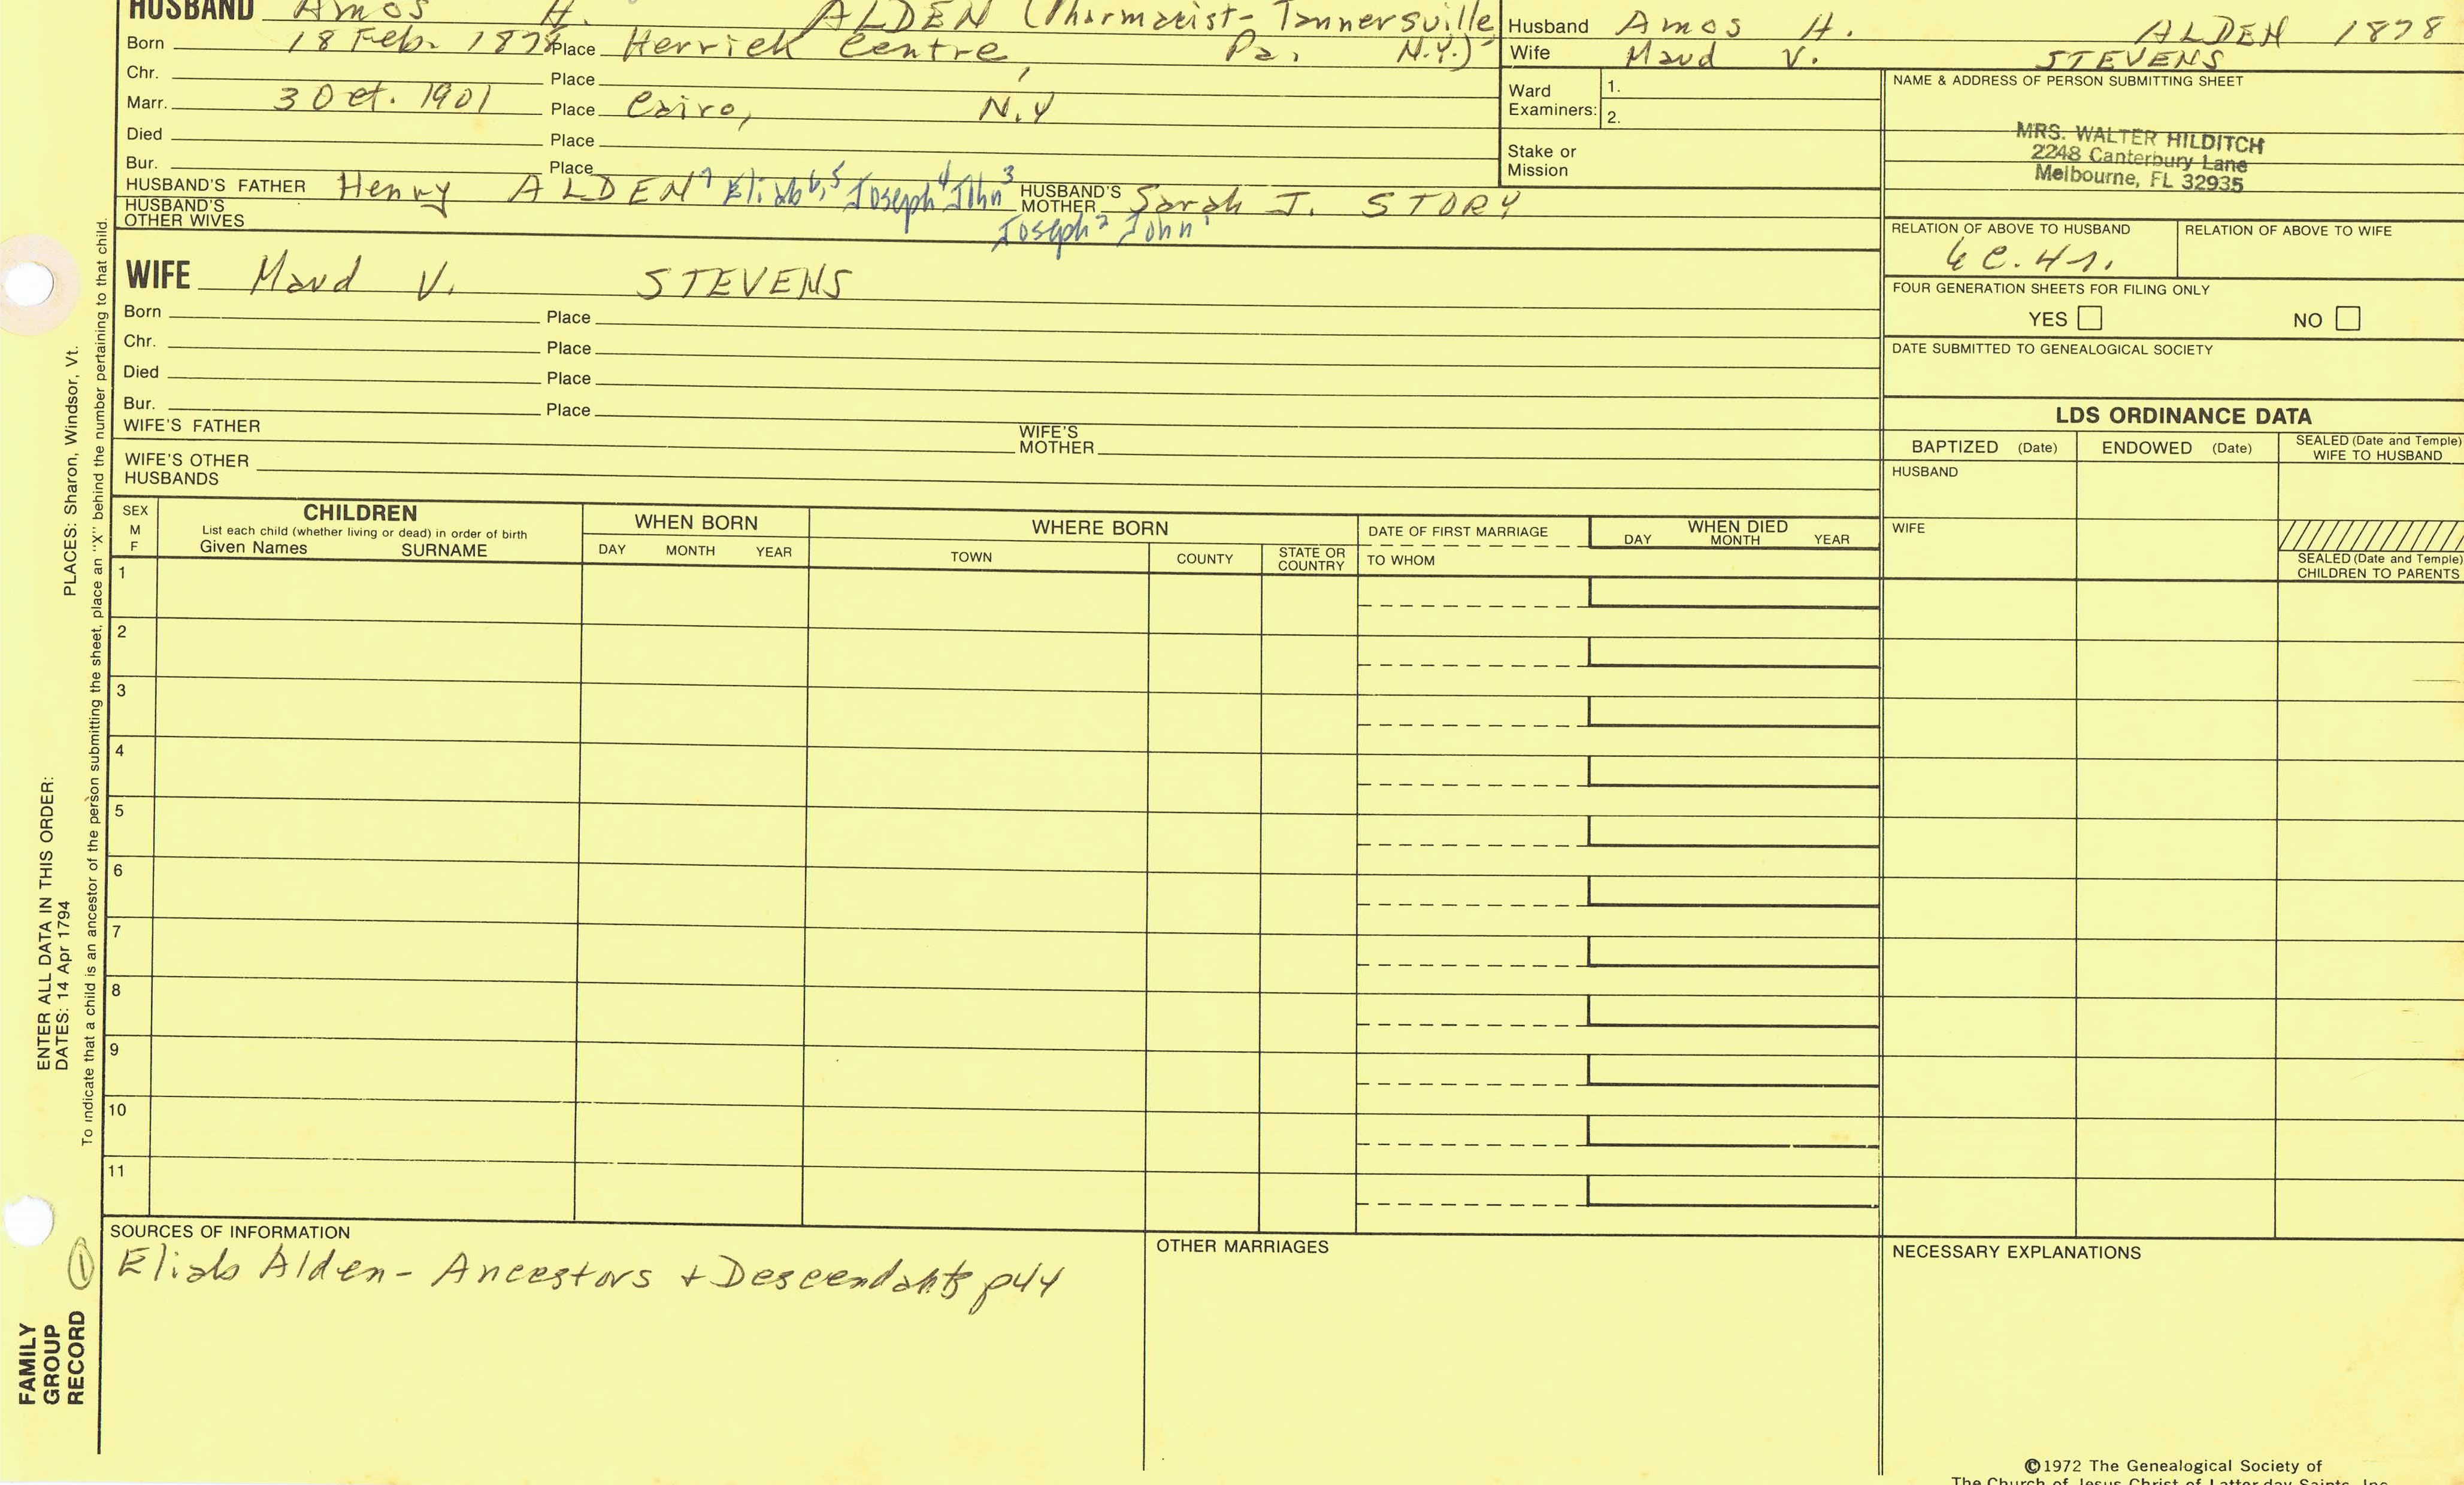 HUSBAND Amos H. ALDEN (Pharmacist- Tannersville, N.Y.)
Born 18 Feb. 1878 Place Herrick Centre, Pa,
Chr. Place
Marr. 3 Oct. 1901 Place Cairo, N.Y
Died Place
Bur. Place
HUSBAND'S FATHER Henry ALDEN⁷ Eliab⁶,⁵ Joseph⁴ John³ Joseph² John¹ HUSBAND'S MOTHER Sarah J. STORY
HUSBAND'S OTHER WIVES
WIFE Maud V. STEVENS
Born Place
Chr. Place
Died Place
Bur. Place
WIFE'S FATHER WIFE'S MOTHER
WIFE'S OTHER HUSBANDS
Husband Amos H. ALDEN 1878
Wife Maud V. STEVENS
Ward Examiners: 1.
2.
Stake or Mission
NAME & ADDRESS OF PERSON SUBMITTING SHEET
MRS. WALTER HILDITCH
2248 Canterbury Lane
Melbourne, FL 32935
RELATION OF ABOVE TO HUSBAND RELATION OF ABOVE TO WIFE
FOUR GENERATION SHEETS FOR FILING ONLY
YES NO
DATE SUBMITTED TO GENEALOGICAL SOCIETY
LDS ORDINANCE DATA
BAPTIZED (Date) ENDOWED (Date) SEALED (Date and Temple) WIFE TO HUSBAND
HUSBAND
WIFE
SEALED (Date and Temple) CHILDREN TO PARENTS
SEX M F
CHILDREN
List each child (whether living or dead) in order of birth
Given Names SURNAME
WHEN BORN
DAY MONTH YEAR
WHERE BORN
TOWN COUNTY STATE OR COUNTRY
DATE OF FIRST MARRIAGE
TO WHOM
WHEN DIED
DAY MONTH YEAR
1
2
3
4
5
6
7
8
9
10
11
SOURCES OF INFORMATION
Eliab Alden- Ancestors + Descendants p44
OTHER MARRIAGES
NECESSARY EXPLANATIONS
©1972 The Genealogical Society of
The Church of Jesus Christ of Latter-day Saints, Inc.
FAMILY GROUP RECORD
1
ENTER ALL DATA IN THIS ORDER:
DATES: 14 Apr 1794
PLACES: Sharon, Windsor, Vt.
To indicate that a child is an ancestor of the person submitting the sheet, place an "X" behind the number pertaining to that child.